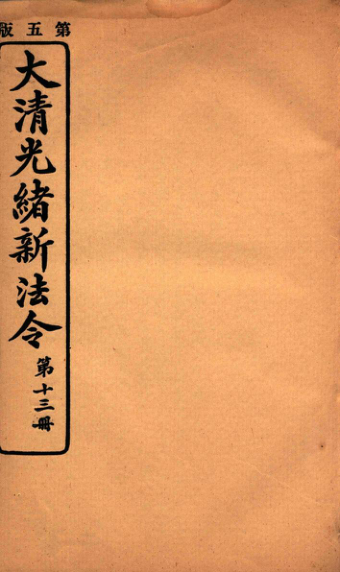 第五版
大清光緒新法令
第十三冊